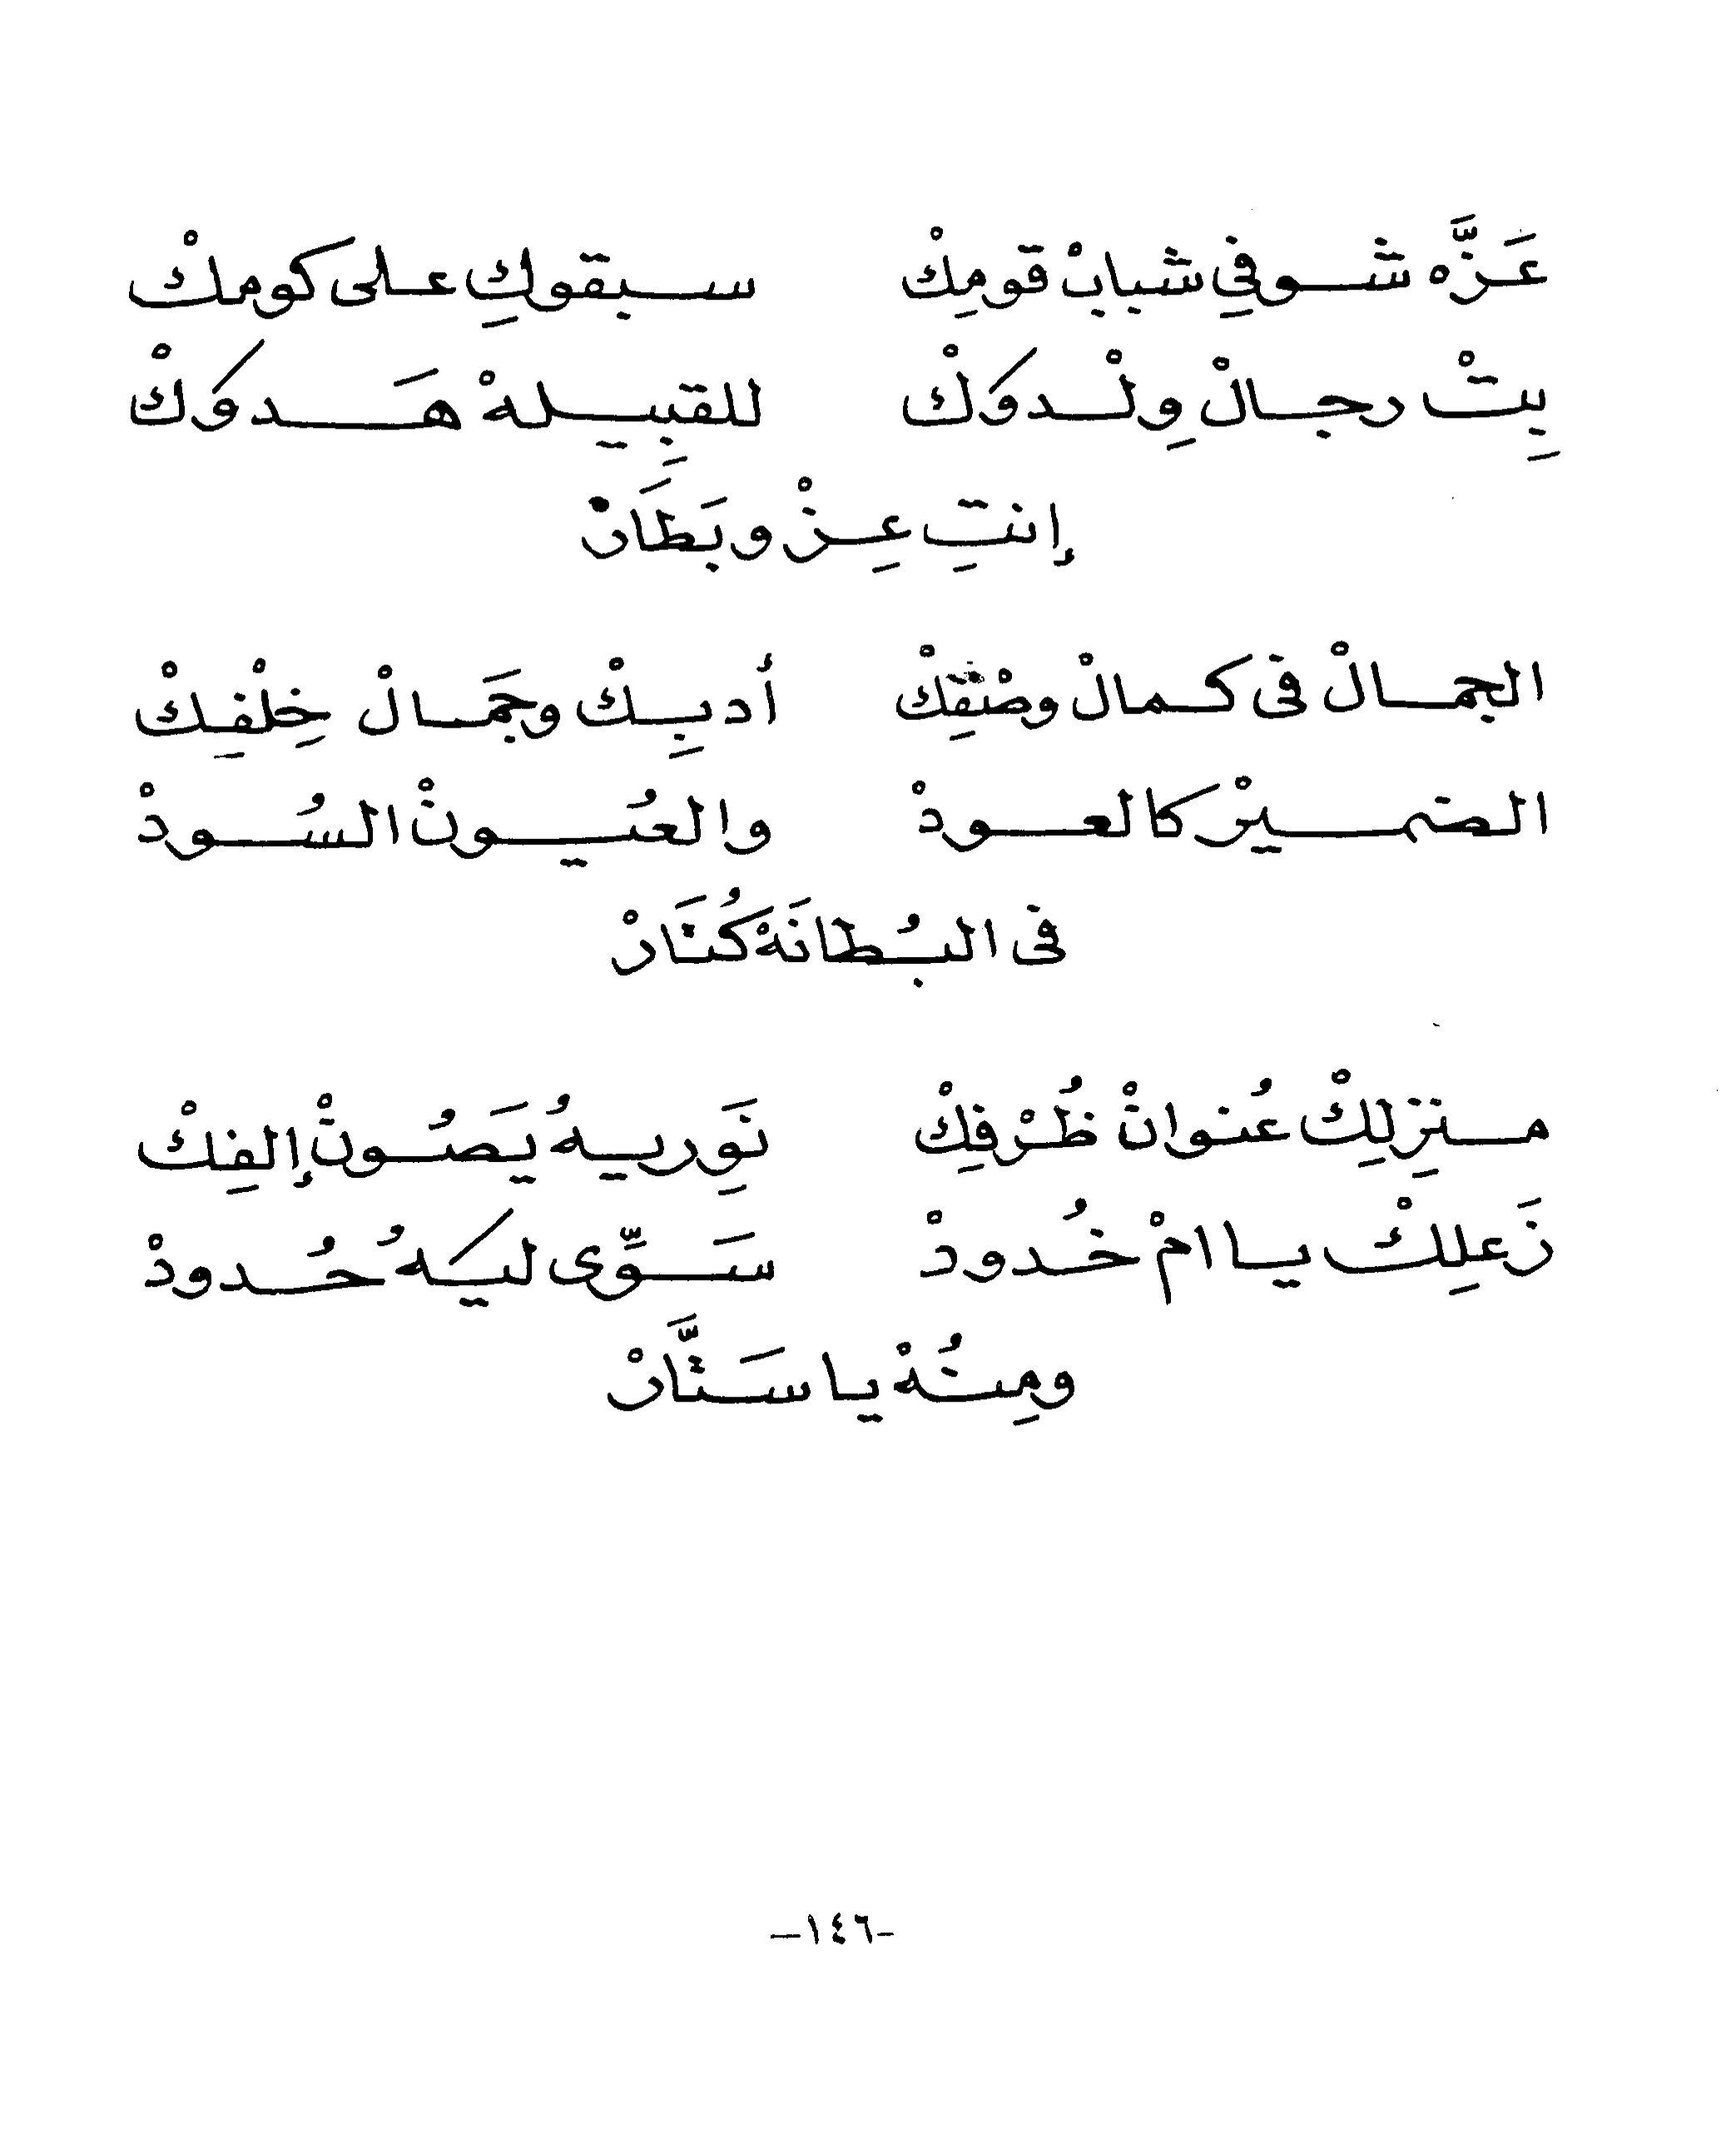 عَـزَّه شـوفِي شبابْ قومِكْ سـبقوكِ عـلى كومِكْ
بِتْ رجـالْ وِلْـدوَكْ للقبِـيلهْ هَـدوَكْ
إنتِ عِـزْ وبَطَارْ
الجمـالْ فى كـمالْ وصْفِكْ أدبِـكْ وجَمـالْ خِلْفِـكْ
الضميرْ كالعـودْ والعُيـونْ السُـودْ
فى البُطانَهْ كُنَارْ
مـنزِلِكْ عُنوانْ ظُرْفِكْ نَوِّريـهُ يَـصُـونْ إلفِكْ
زَعلِكْ يـا امْ خُـدودْ سَـوِّى ليـهُ حُـدودْ
ومِنُهْ يا سَـتَّارْ
-١٤٦-